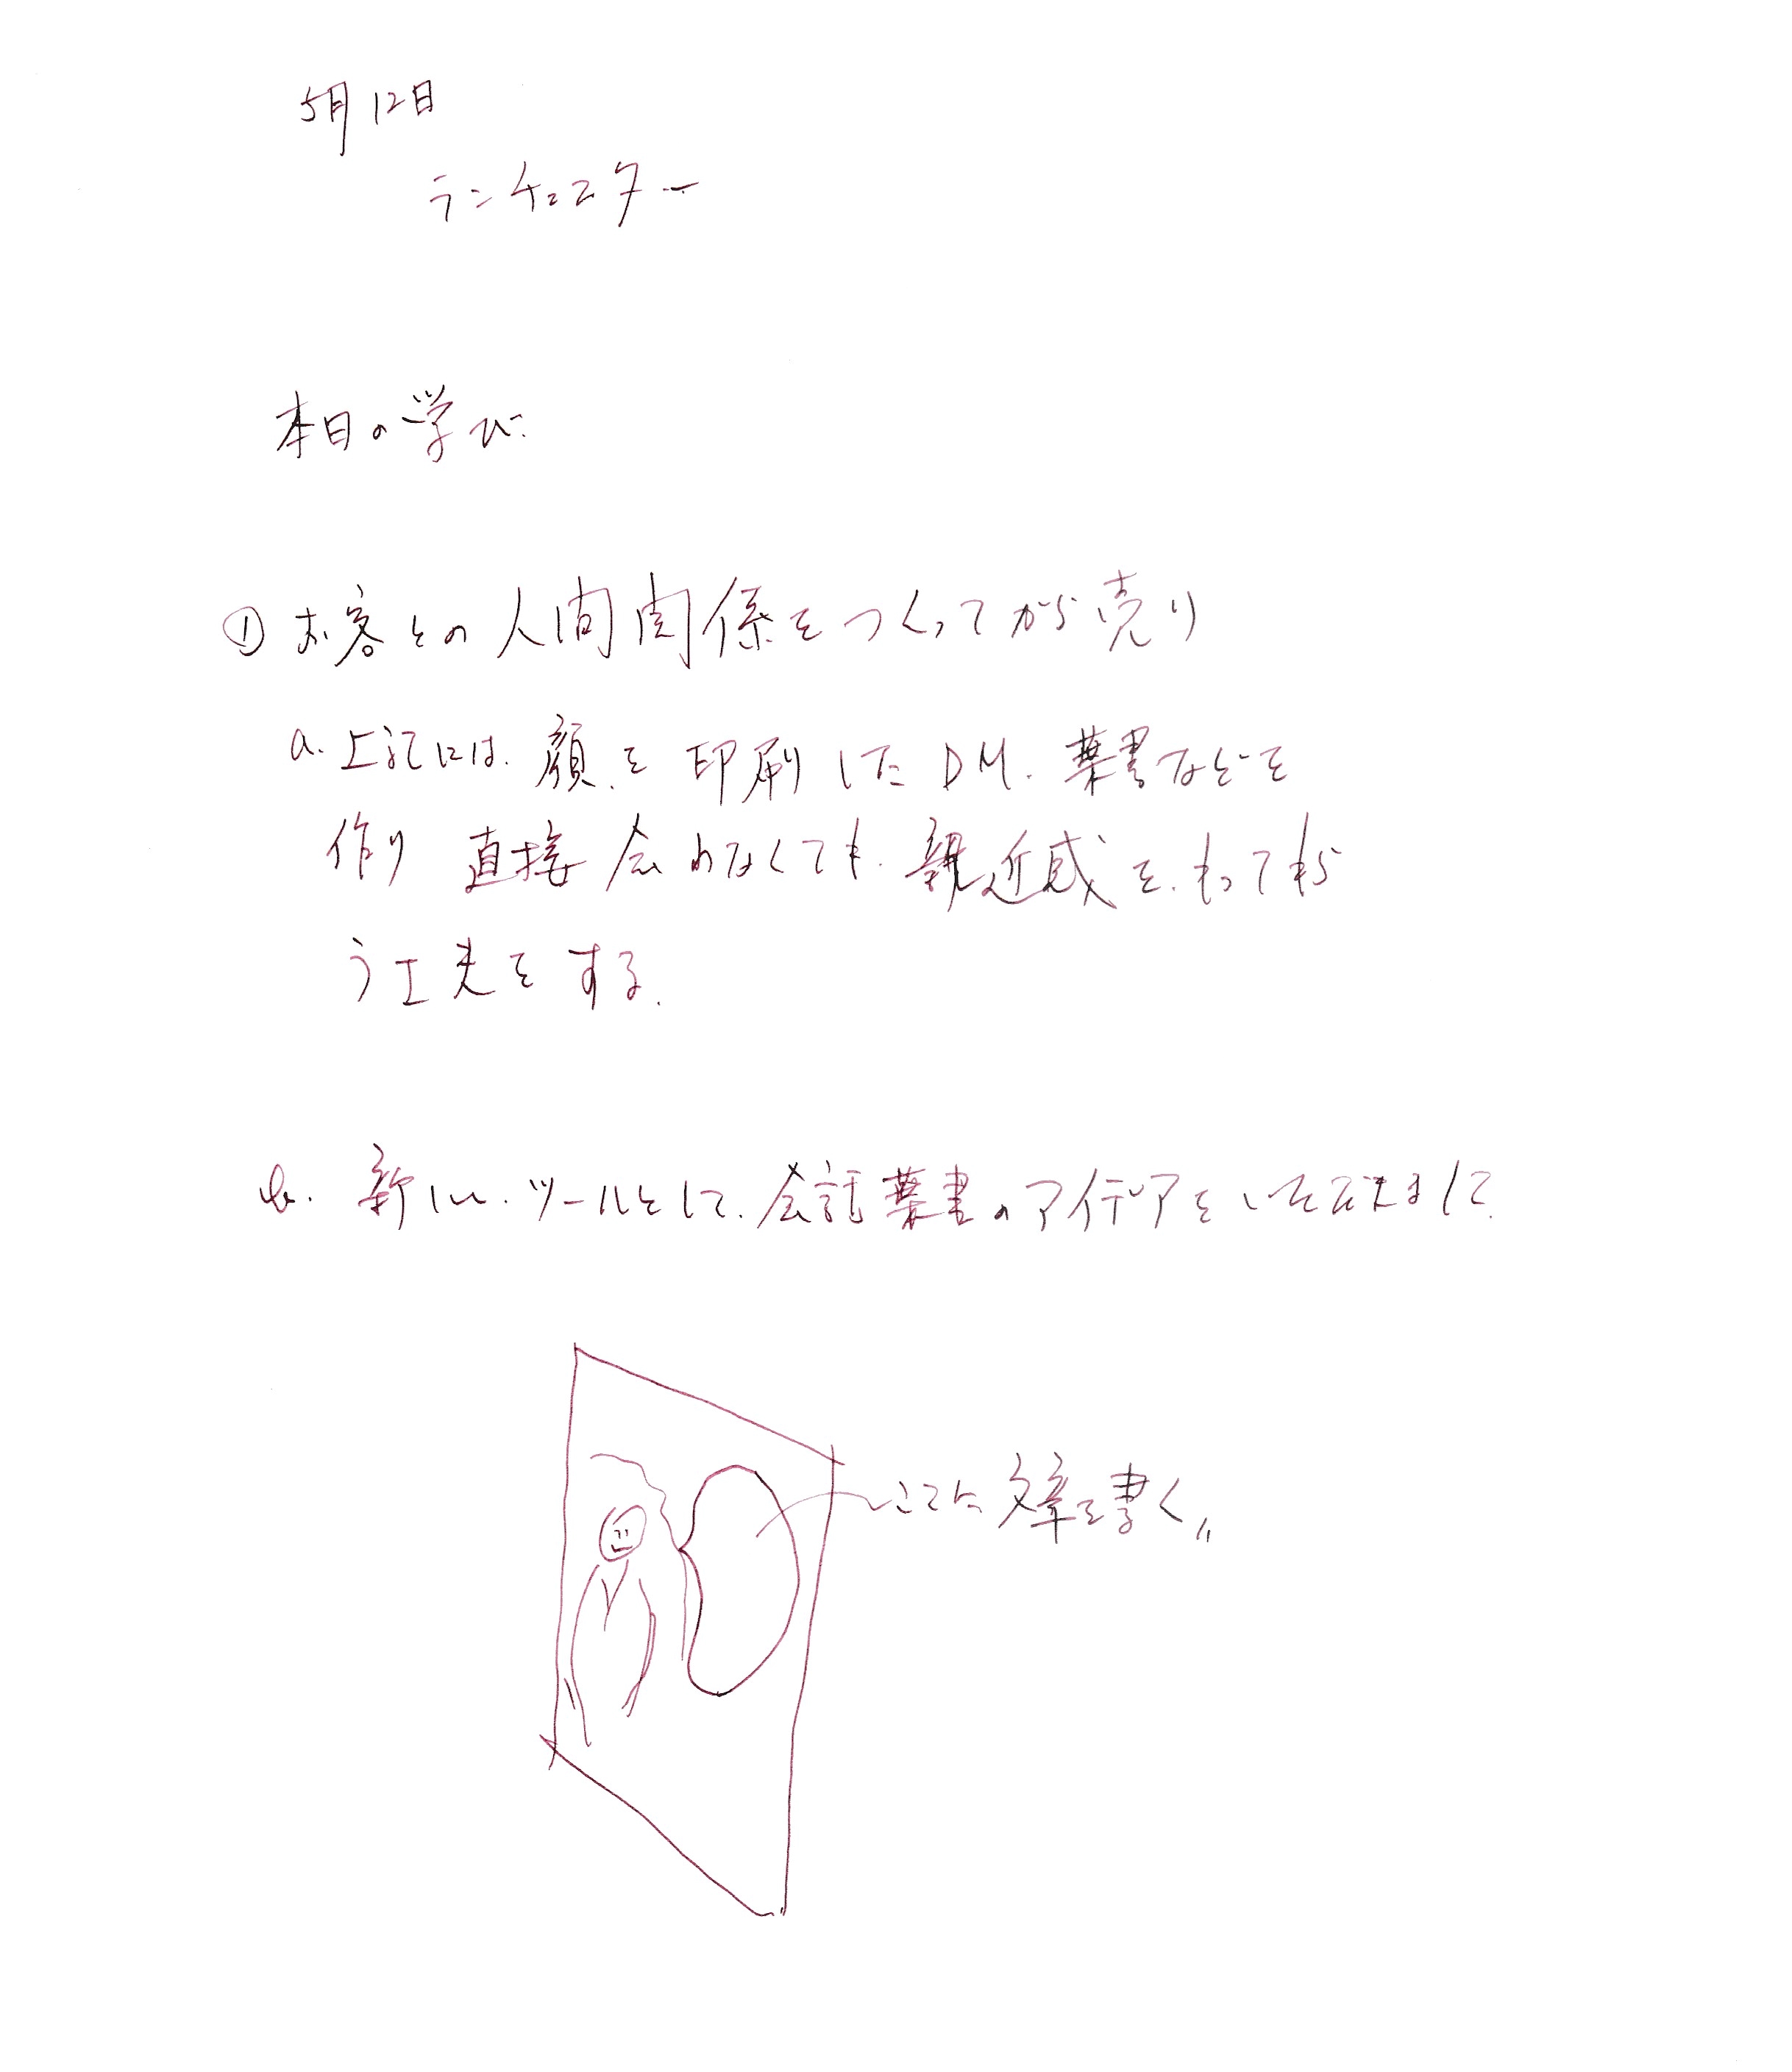 5月12日
ランチェスター
本日の学び
① お客との人間関係をつくってから売り
a. 上記には、顔を印刷したDM、葉書などを
作り 直接会わなくても、親近感を、もってもら
う工夫をする.
b. 新しい、ツールとして、会話葉書のアイデアをいただきまして.
ここに、文章を書く〃